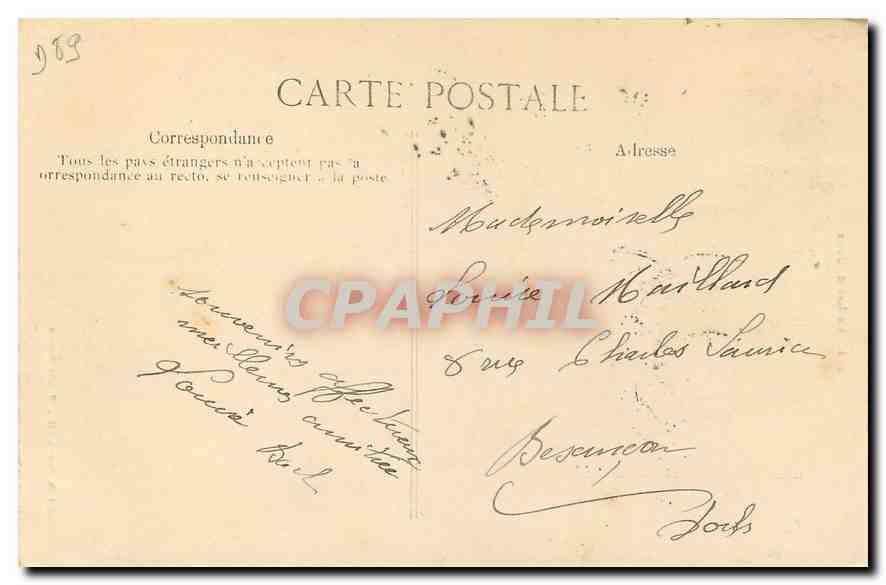 D 89
CARTE POSTALE
Correspondance
Tous les pays étrangers n'acceptent pas la
orrespondance au recto, se renseigner à la poste
Adresse
souvenirs affectueux
meilleures amitiés
Louise
Mademoiselle
Louise Maillard
rue Charles
Besançon
Doubs
CPAPHIL